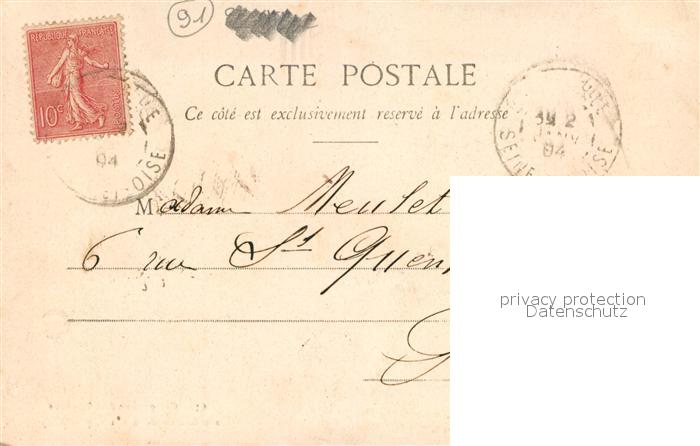 91
RÉPUBLIQUE FRANÇAISE
10c
POSTES
CARTE POSTALE
Ce côté est exclusivement reservé à l'adresse
04
OISE
SEINE
OISE
2
04
Madame Meulet
6 rue St Quen
privacy protection
Datenschutz